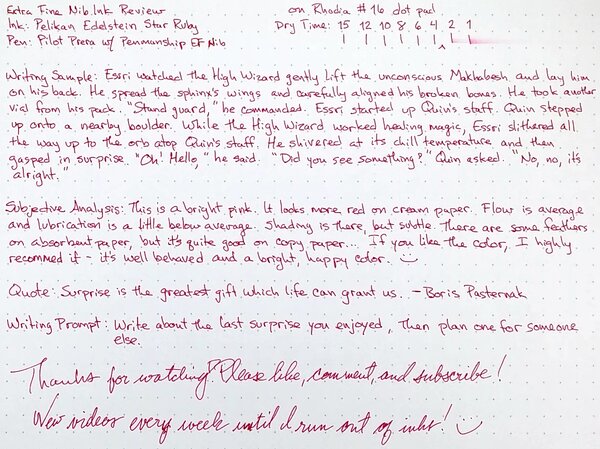 Extra Fine Nib Ink Review on Rhodia #16 dot pad
Ink: Pelikan Edelstein Star Ruby Dry Time: 15 12 10 8 6 4 2 1
Pen: Pilot Prera w/ Penmanship EF Nib
Writing Sample: Essri watched the High Wizard gently lift the unconscious Makhabesh and lay him
on his back. He spread the sphinx's wings and carefully aligned his broken bones. He took another
vial from his pack. "Stand guard," he commanded. Essri started up Quin's staff. Quin stepped
up onto a nearby boulder. While the High Wizard worked healing magic, Essri slithered all
the way up to the orb atop Quin's staff. He shivered at its chill temperature and then
gasped in surprise. "Oh! Hello," he said. "Did you see something?" Quin asked. "No, no, it's
alright."
Subjective Analysis: This is a bright pink. It looks more red on cream paper. Flow is average
and lubrication is a little below average. Shading is there, but subtle. There are some feathers
on absorbent paper, but it's quite good on copy paper... If you like the color, I highly
recommed it - it's well behaved and a bright, happy color.
Quote: Surprise is the greatest gift which life can grant us. - Boris Pasternak
Writing Prompt: Write about the last surprise you enjoyed, then plan one for someone
else.
Thanks for watching! Please like, comment, and subscribe!
New videos every week until I run out of inks!